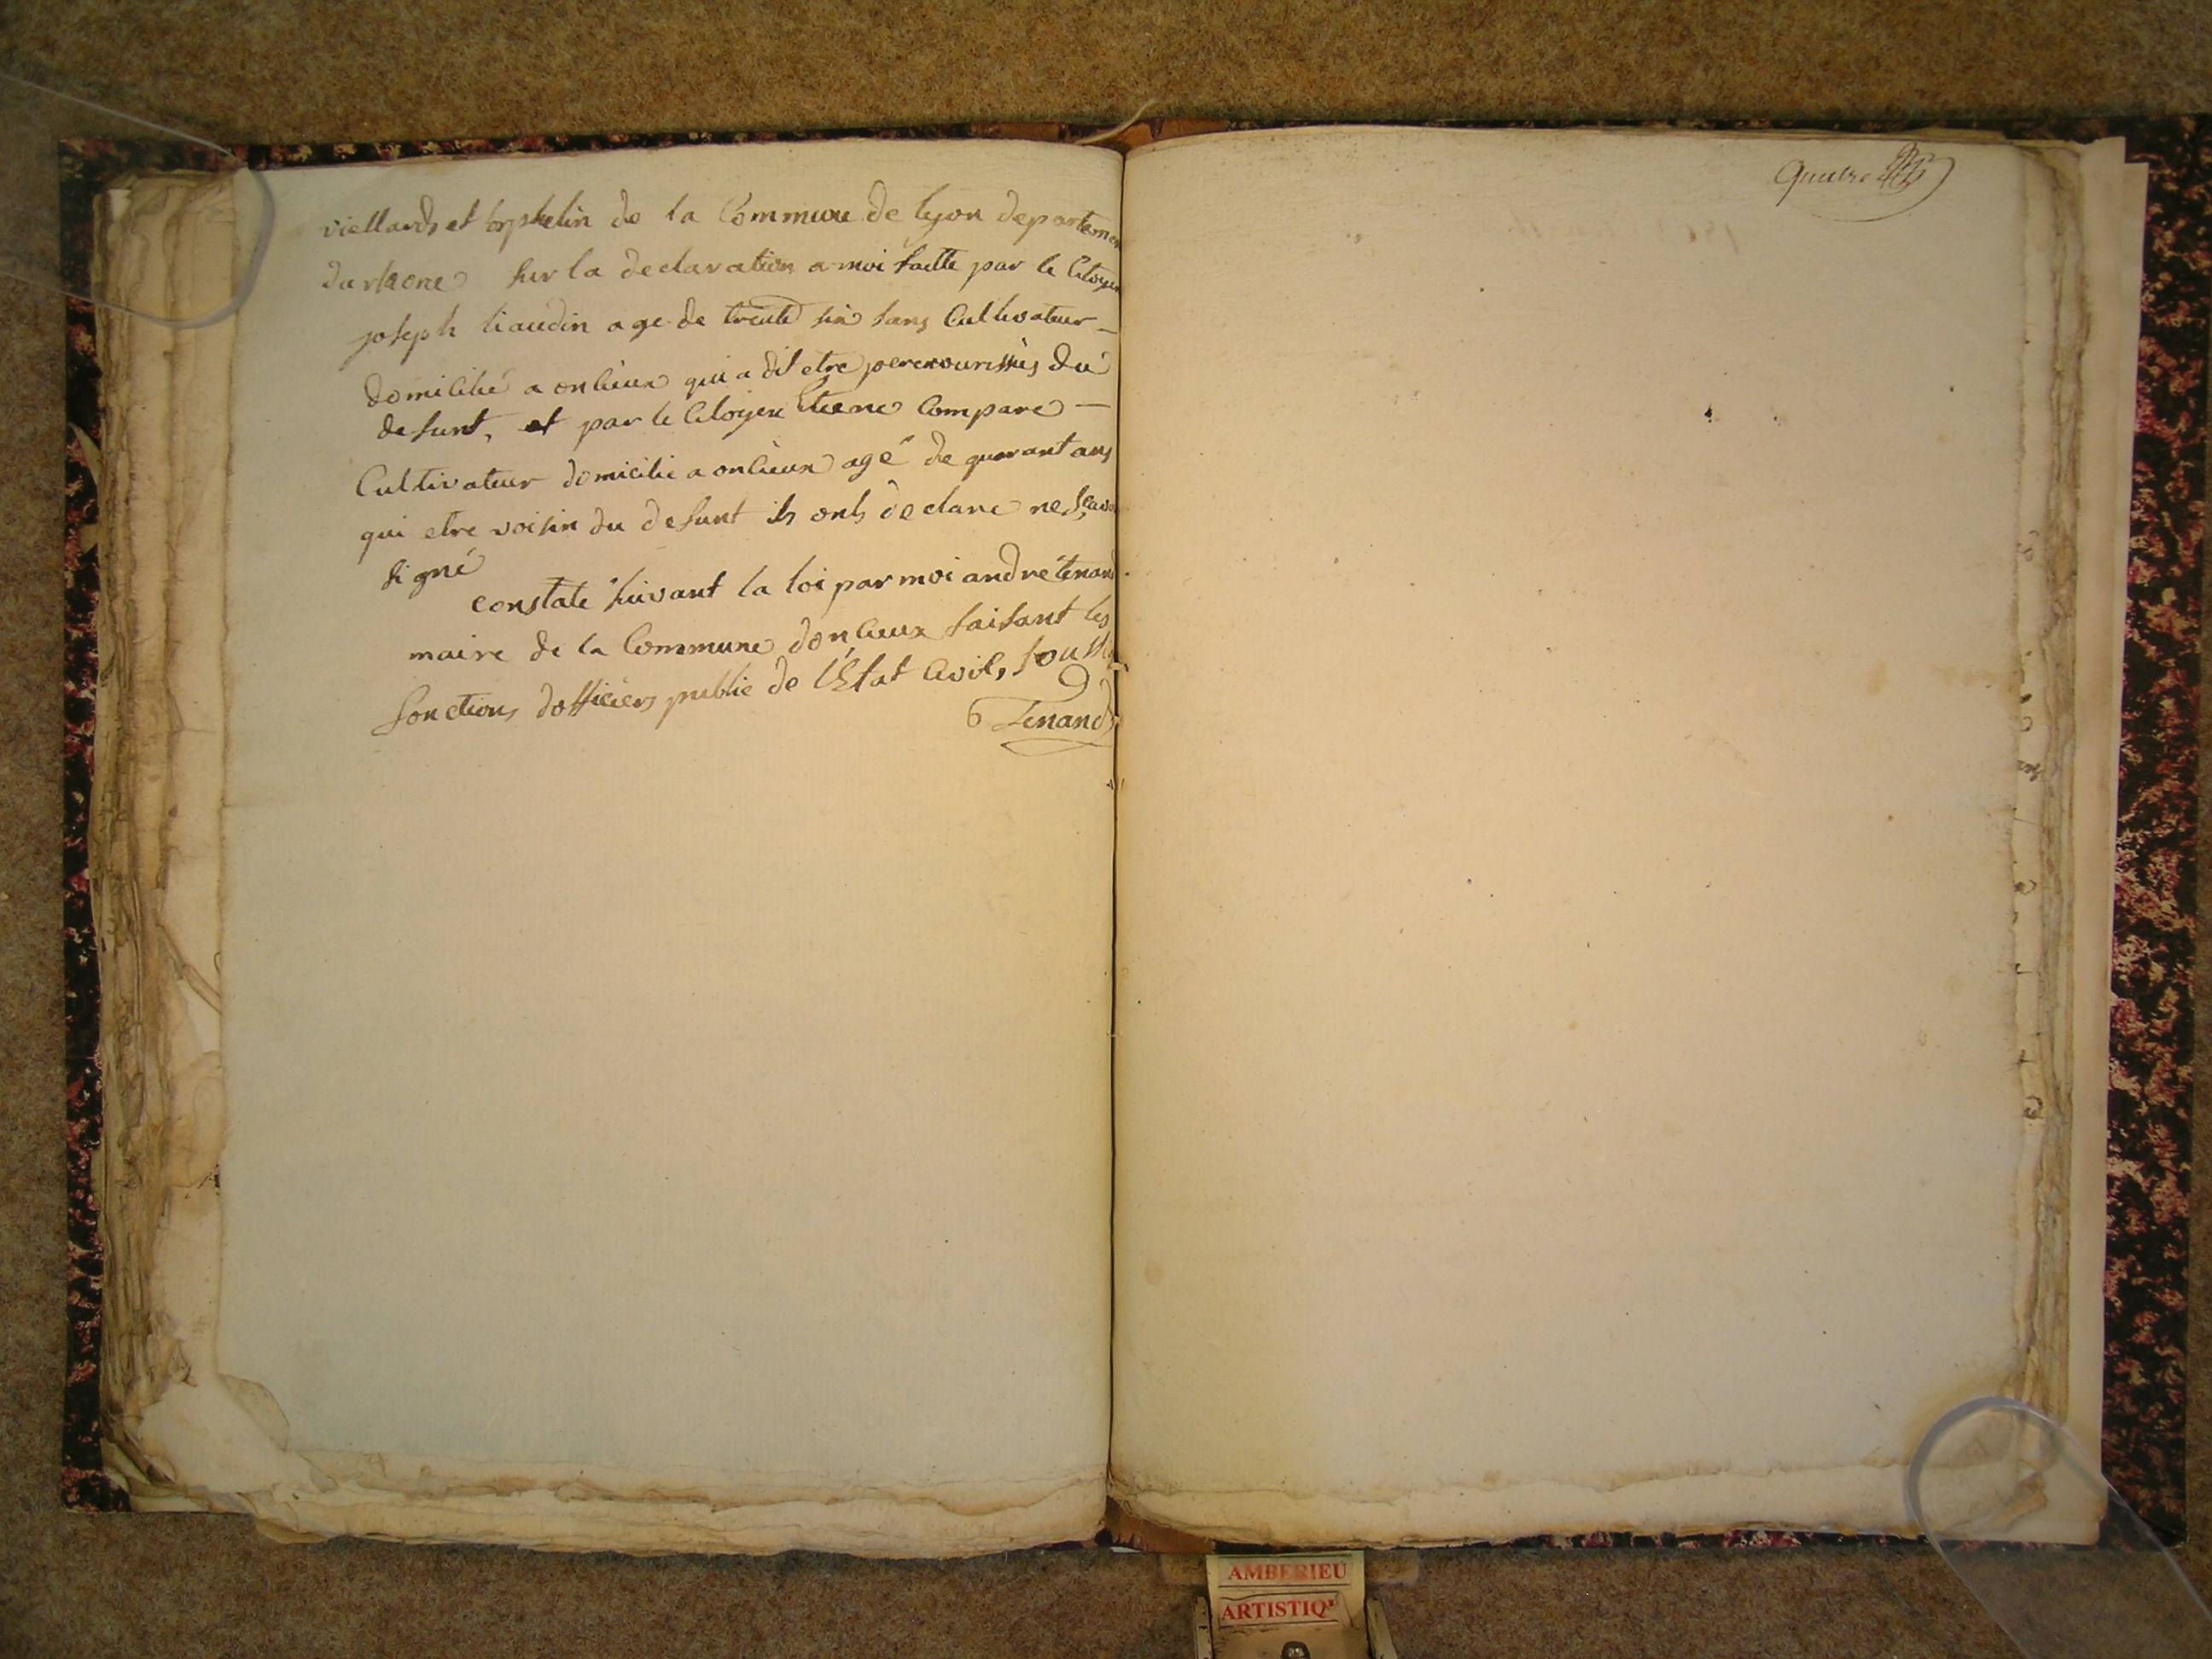 viellards et orphelin de la Commune de lyon departemen
du rhone sur la declaration a moi faitte par le Citoyen
joseph liaudin age de trente six sans Cultivateur
domicilié a onlieux qui a dit etre perenourissies du
defunt, et par le Citoyen Etiene Compare
Cultivateur domicilie a onlieux agé de quarant ans
qui etre voisin du defunt ils onts declare ne scavoi
signé
constate suivant la loi par moi andre tenand
maire de la Commune donlieux faisant les
fonctions dofficiers public de l'Etat Civil, soussi
Tenand
quatre
AMBERIEU
ARTISTIQ